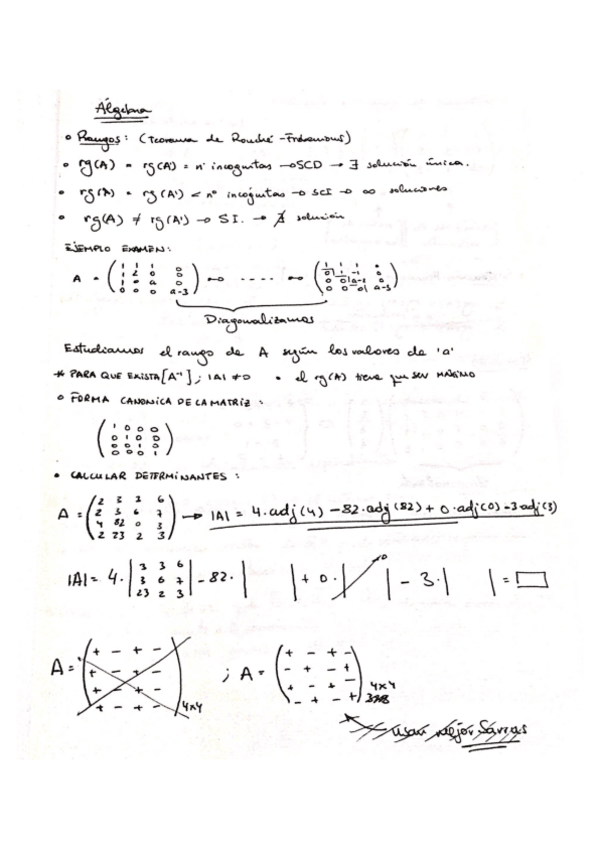 Álgebra
• Rangos: (Teorema de Rouché-Fröbenius)
• rg(A) = rg(A') = nº incognitas → SCD → ∃ solución única.
• rg(A) = rg(A') < nº incógnitas → SCI → ∞ soluciones
• rg(A) ≠ rg(A') → SI. → ∄ solución
EJEMPLO EXAMEN:
1 1 1 0 1 1 1 0
1 2 0 0 0 1 -1 0
A = 1 0 a 0 ↔ ..... ↔ 0 0 a-1 0
0 0 0 a-3 0 0 0 a-3
Diagonalizamos
Estudiamos el rango de A según los valores de 'a'
* PARA QUE EXISTA [A⁻¹] ; |A| ≠ 0 • el rg(A) tiene que ser MÁXIMO
• FORMA CANONICA DE LA MATRIZ:
1 0 0 0
0 1 0 0
0 0 1 0
0 0 0 1
• CALCULAR DETERMINANTES:
2 3 3 6
A = 2 3 6 7 → |A| = 4·adj(4) - 82·adj(82) + 0·adj(0) - 3·adj(3)
4 82 0 3
2 23 2 3
3 3 6
|A| = 4· | 3 6 7 | - 82· | | + 0· | | - 3· | | =
23 2 3
+ - + - + - + -
A = + - + - ; A = - + - +
+ - + - + - + -
+ - + - 4x4 - + - + 4x4
usar mejor Sarrus